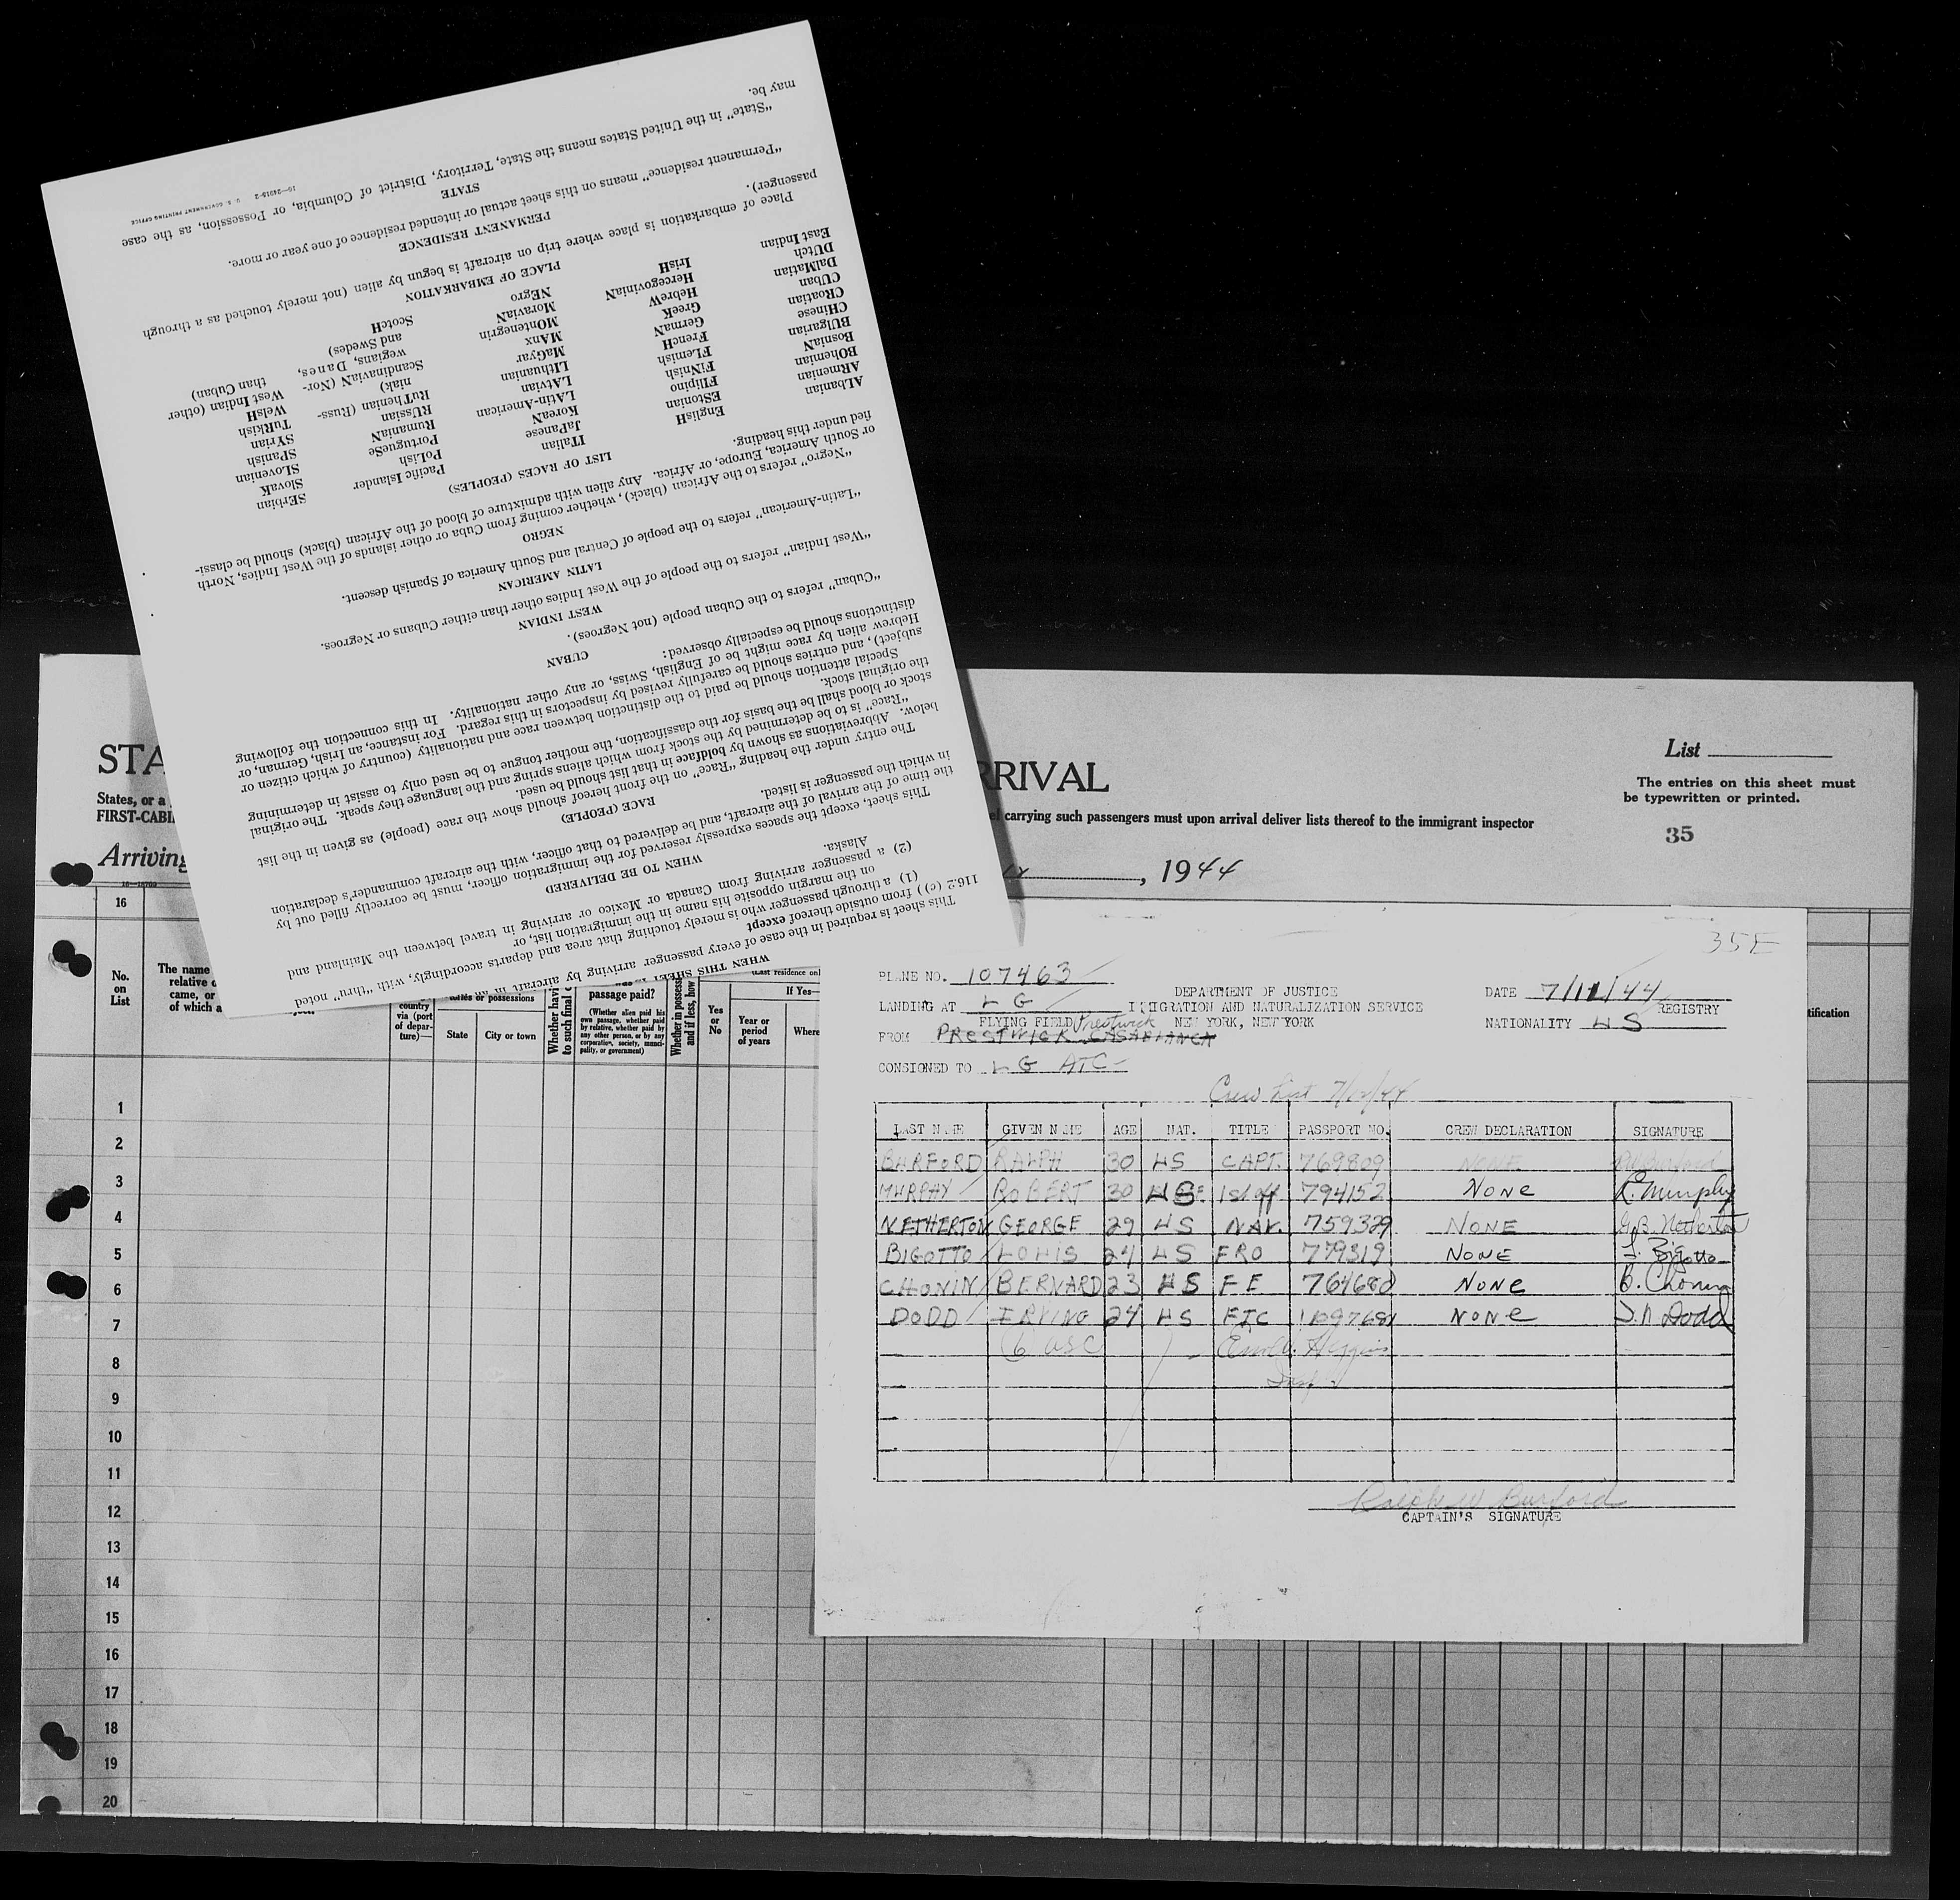 may be.
"State" in the United States means the State, Territory, District of Columbia, or Possession, as the case
STATE
"Permanent residence" means on this sheet actual or intended residence of one year or more.
PERMANENT RESIDENCE
passenger).
Place of embarkation is place where trip on aircraft is begun by alien (not merely touched as a through
PLACE OF EMBARKATION
East Indian
DUtch IrisH
DalMatian HercegoviniaN NEgro
CUban HebreW MoraviaN ScotcH
CRoatian GreeK MOntenegrin and Swedes)
CHinese GermaN MAnx wegians, Danes, than Cuban)
BUlgarian FrencH MaGyar ScandinaviaN (Nor- West Indian (other
BosniaN FLemish LIthuanian niak) WelsH
BOhemian FiNnish LAtvian RuThenian (Russ- TuRkish
ARmenian FIlipino LAtin-American RUssian SYrian
ALbanian EStonian KoreaN RumaniaN SPanish
EnglisH JaPanese PortugueSe SLovenian
ITalian PoLish SlovaK
Pacific Islander SErbian
LIST OF RACES (PEOPLES)
fied under this heading.
or South America, Europe, or Africa. Any alien with admixture of blood of the African (black) should be classi-
"Negro" refers to the African (black), whether coming from Cuba or other islands of the West Indies, North
NEGRO
"Latin-American" refers to the people of Central and South America of Spanish descent.
LATIN AMERICAN
"West Indian" refers to the people of the West Indies other than either Cubans or Negroes.
WEST INDIAN
"Cuban" refers to the Cuban people (not Negroes).
CUBAN
distinctions should be especially observed:
Hebrew alien by race might be of English, Swiss, or any other nationality. In this connection the following
subject), and entries should be carefully revised by inspectors in this regard. For instance, an Irish, German, or
Special attention should be paid to the distinction between race and nationality (country of which citizen or
the original stock.
stock or blood shall be the basis for the classification, the mother tongue to be used only to assist in determining
"Race" is to be determined by the stock from which aliens spring and the language they speak. The original
below. Abbreviations as shown by boldface in that list should be used.
The entry under the heading "Race" on the front hereof should show the race (people) as given in the list
RACE (PEOPLE)
in which the passenger is listed.
the time of the arrival of the aircraft, and be delivered to that officer, with the aircraft commander's declaration
This sheet, except the spaces expressly reserved for the immigration officer, must be correctly filled out by
WHEN TO BE DELIVERED
Alaska.
(2) a passenger arriving from Canada or Mexico or arriving in travel between the Mainland and
on the margin opposite his name in the immigration list, or
(1) a through passenger who is merely touching that area and departs accordingly, with "thru" noted
116.2 (c)) from outside thereof except
This sheet is required in the case of every passenger arriving by aircraft in
WHEN THIS SHEET
STA RRIVAL
List
The entries on this sheet must
be typewritten or printed.
35
States, or a
FIRST-CABI
carrying such passengers must upon arrival deliver lists thereof to the immigrant inspector
Arriving , 1944
16
No.
on
List
The name
relative
came, or
of which a
country
via (port
of depar-
ture)—
or possessions
State City or town
Whether havi
to such final
passage paid?
(Whether alien paid his
own passage, whether paid
by relative, whether paid by
any other person, or by any
corporation, society, munici-
pality, or government)
Whether in possess
and if less, how
Yes
or
No
If Yes—
Year or
period
of years
Where
tification
1
2
3
4
5
6
7
8
9
10
11
12
13
14
15
16
17
18
19
20
35E
PLANE NO. 107463
DEPARTMENT OF JUSTICE
DATE 7/11/44
LANDING AT L G
IMMIGRATION AND NATURALIZATION SERVICE
REGISTRY
FLYING FIELD Prestwick NEW YORK, NEW YORK
NATIONALITY US
FROM PRESTWICK CASABLANCA
CONSIGNED TO L G ATC
Crew List 7/12/44
LAST NAME GIVEN NAME AGE NAT. TITLE PASSPORT NO. CREW DECLARATION SIGNATURE
BURFORD RALPH 30 US CAPT. 769809 NONE RW Burford
MURPHY ROBERT 30 US 1st off 794152 NONE R. Murphy
NETHERTON GEORGE 29 US NAV. 759329 NONE G.B. Netherton
BIGOTTO LOUIS 24 US FRO 779319 NONE L. Bigotto
CHONIN BERNARD 23 US FE 764680 NONE B. Chonin
DODD IRVING 24 US FTC NONE Dodd
(6) USC
Ralph W Burford
CAPTAIN'S SIGNATURE